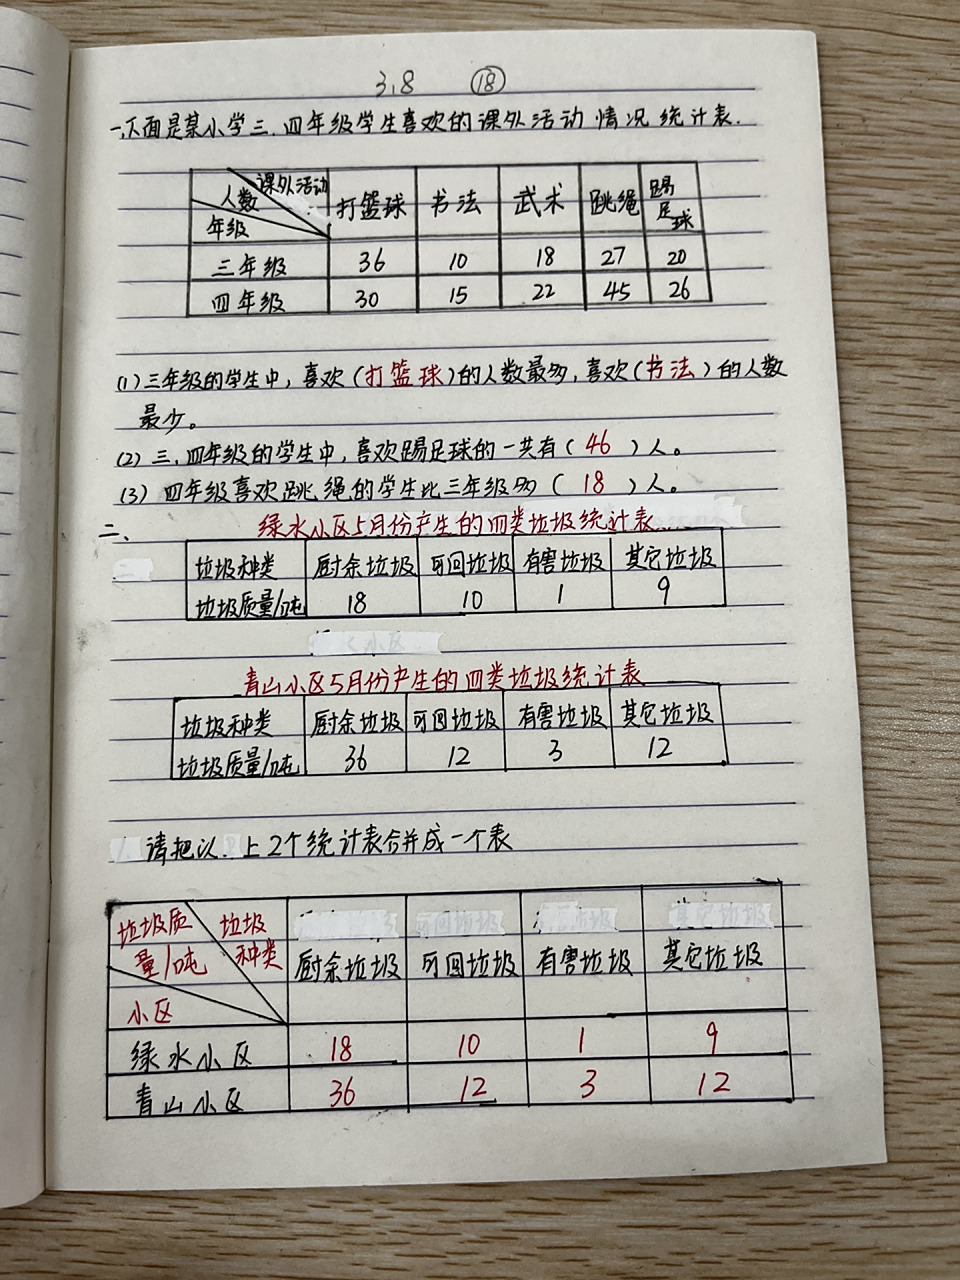 3.8 ⑱
一、下面是某小学三、四年级学生喜欢的课外活动情况统计表.
课外活动 人数 年级 打篮球 书法 武术 跳绳 踢足球
三年级 36 10 18 27 20
四年级 30 15 22 45 26
(1)三年级的学生中，喜欢(打篮球)的人数最多，喜欢(书法)的人数
最少。
(2)三、四年级的学生中，喜欢踢足球的一共有(46)人。
(3)四年级喜欢跳绳的学生比三年级多(18)人。
二、 绿水小区5月份产生的四类垃圾统计表
垃圾种类 厨余垃圾 可回垃圾 有害垃圾 其它垃圾
垃圾质量/吨 18 10 1 9
青山小区5月份产生的四类垃圾统计表
垃圾种类 厨余垃圾 可回垃圾 有害垃圾 其它垃圾
垃圾质量/吨 36 12 3 12
请把以上2个统计表合并成一个表
垃圾质量/吨 垃圾种类 小区 厨余垃圾 可回垃圾 有害垃圾 其它垃圾
绿水小区 18 10 1 9
青山小区 36 12 3 12